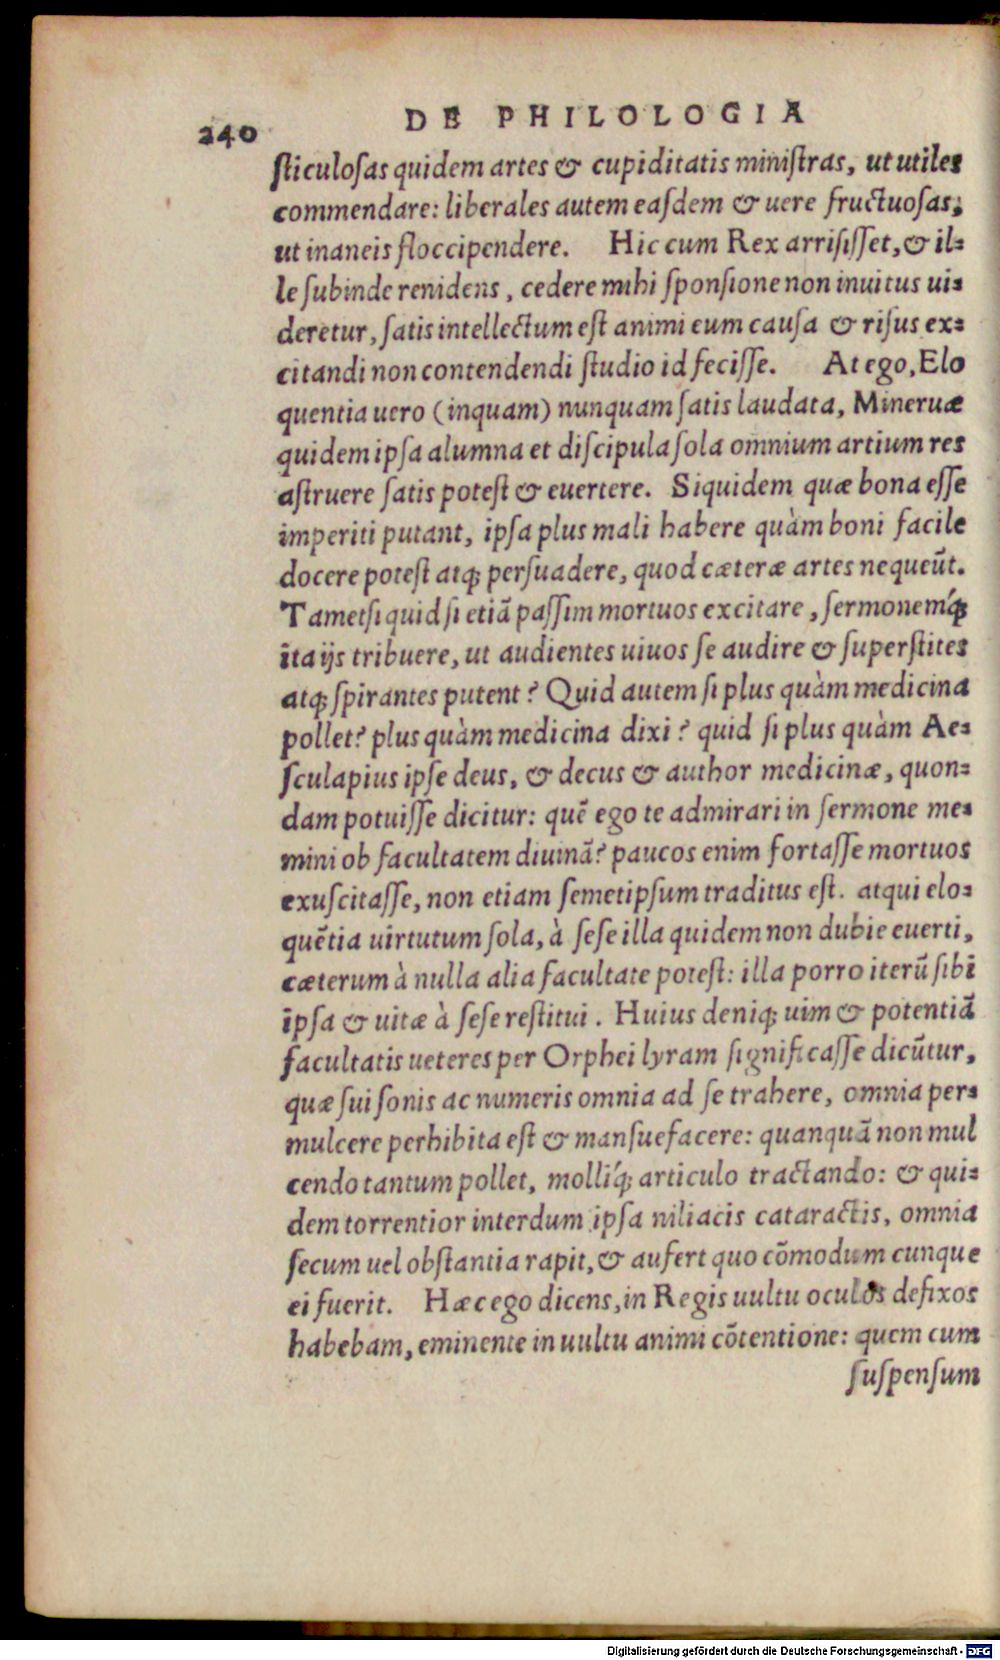 240
DE PHILOLOGIA
ſticuloſas quidem artes & cupiditatis miniſtras, ut utiles
commendare: liberales autem eaſdem & uere fructuoſas;
ut inaneis floccipendere. Hic cum Rex arriſiſſet, & il⸗
le ſubinde renidens, cedere mihi ſponſione non inuitus ui⸗
deretur, ſatis intellectum eſt animi eum cauſa & riſus ex⸗
citandi non contendendi ſtudio id feciſſe. At ego, Elo
quentia uero (inquam) nunquam ſatis laudata, Mineruæ
quidem ipſa alumna et diſcipula ſola omnium artium res
aſtruere ſatis poteſt & euertere. Siquidem quæ bona eſſe
imperiti putant, ipſa plus mali habere quàm boni facile
docere poteſt atq; perſuadere, quod cæteræ artes nequeūt.
Tametſi quid ſi etiã paſſim mortuos excitare, ſermonemq́;
ita ijs tribuere, ut audientes uiuos ſe audire & ſuperſtites
atq; ſpirantes putent? Quid autem ſi plus quàm medicina
pollet? plus quàm medicina dixi? quid ſi plus quàm Ae⸗
ſculapius ipſe deus, & decus & author medicinæ, quon⸗
dam potuiſſe dicitur: quē ego te admirari in ſermone me⸗
mini ob facultatem diuinã? paucos enim fortaſſe mortuos
exuſcitaſſe, non etiam ſemetipſum traditus eſt. atqui elo⸗
quētia uirtutum ſola, à ſeſe illa quidem non dubie euerti,
cæterum à nulla alia facultate poteſt: illa porro iterū ſibi
ipſa & uitæ à ſeſe reſtitui. Huius deniq; uim & potentiã
facultatis ueteres per Orphei lyram ſignificaſſe dicūtur,
quæ ſui ſonis ac numeris omnia ad ſe trahere, omnia per⸗
mulcere perhibita eſt & manſuefacere: quanquã non mul
cendo tantum pollet, molliq́; articulo tractando: & qui⸗
dem torrentior interdum ipſa niliacis cataractis, omnia
ſecum uel obſtantia rapit, & aufert quo cōmodum cunque
ei fuerit. Hæc ego dicens, in Regis uultu oculos defixos
habebam, eminente in uultu animi cōtentione: quem cum
ſuſpenſum
Digitalisierung gefördert durch die Deutsche Forschungsgemeinschaft - DFG